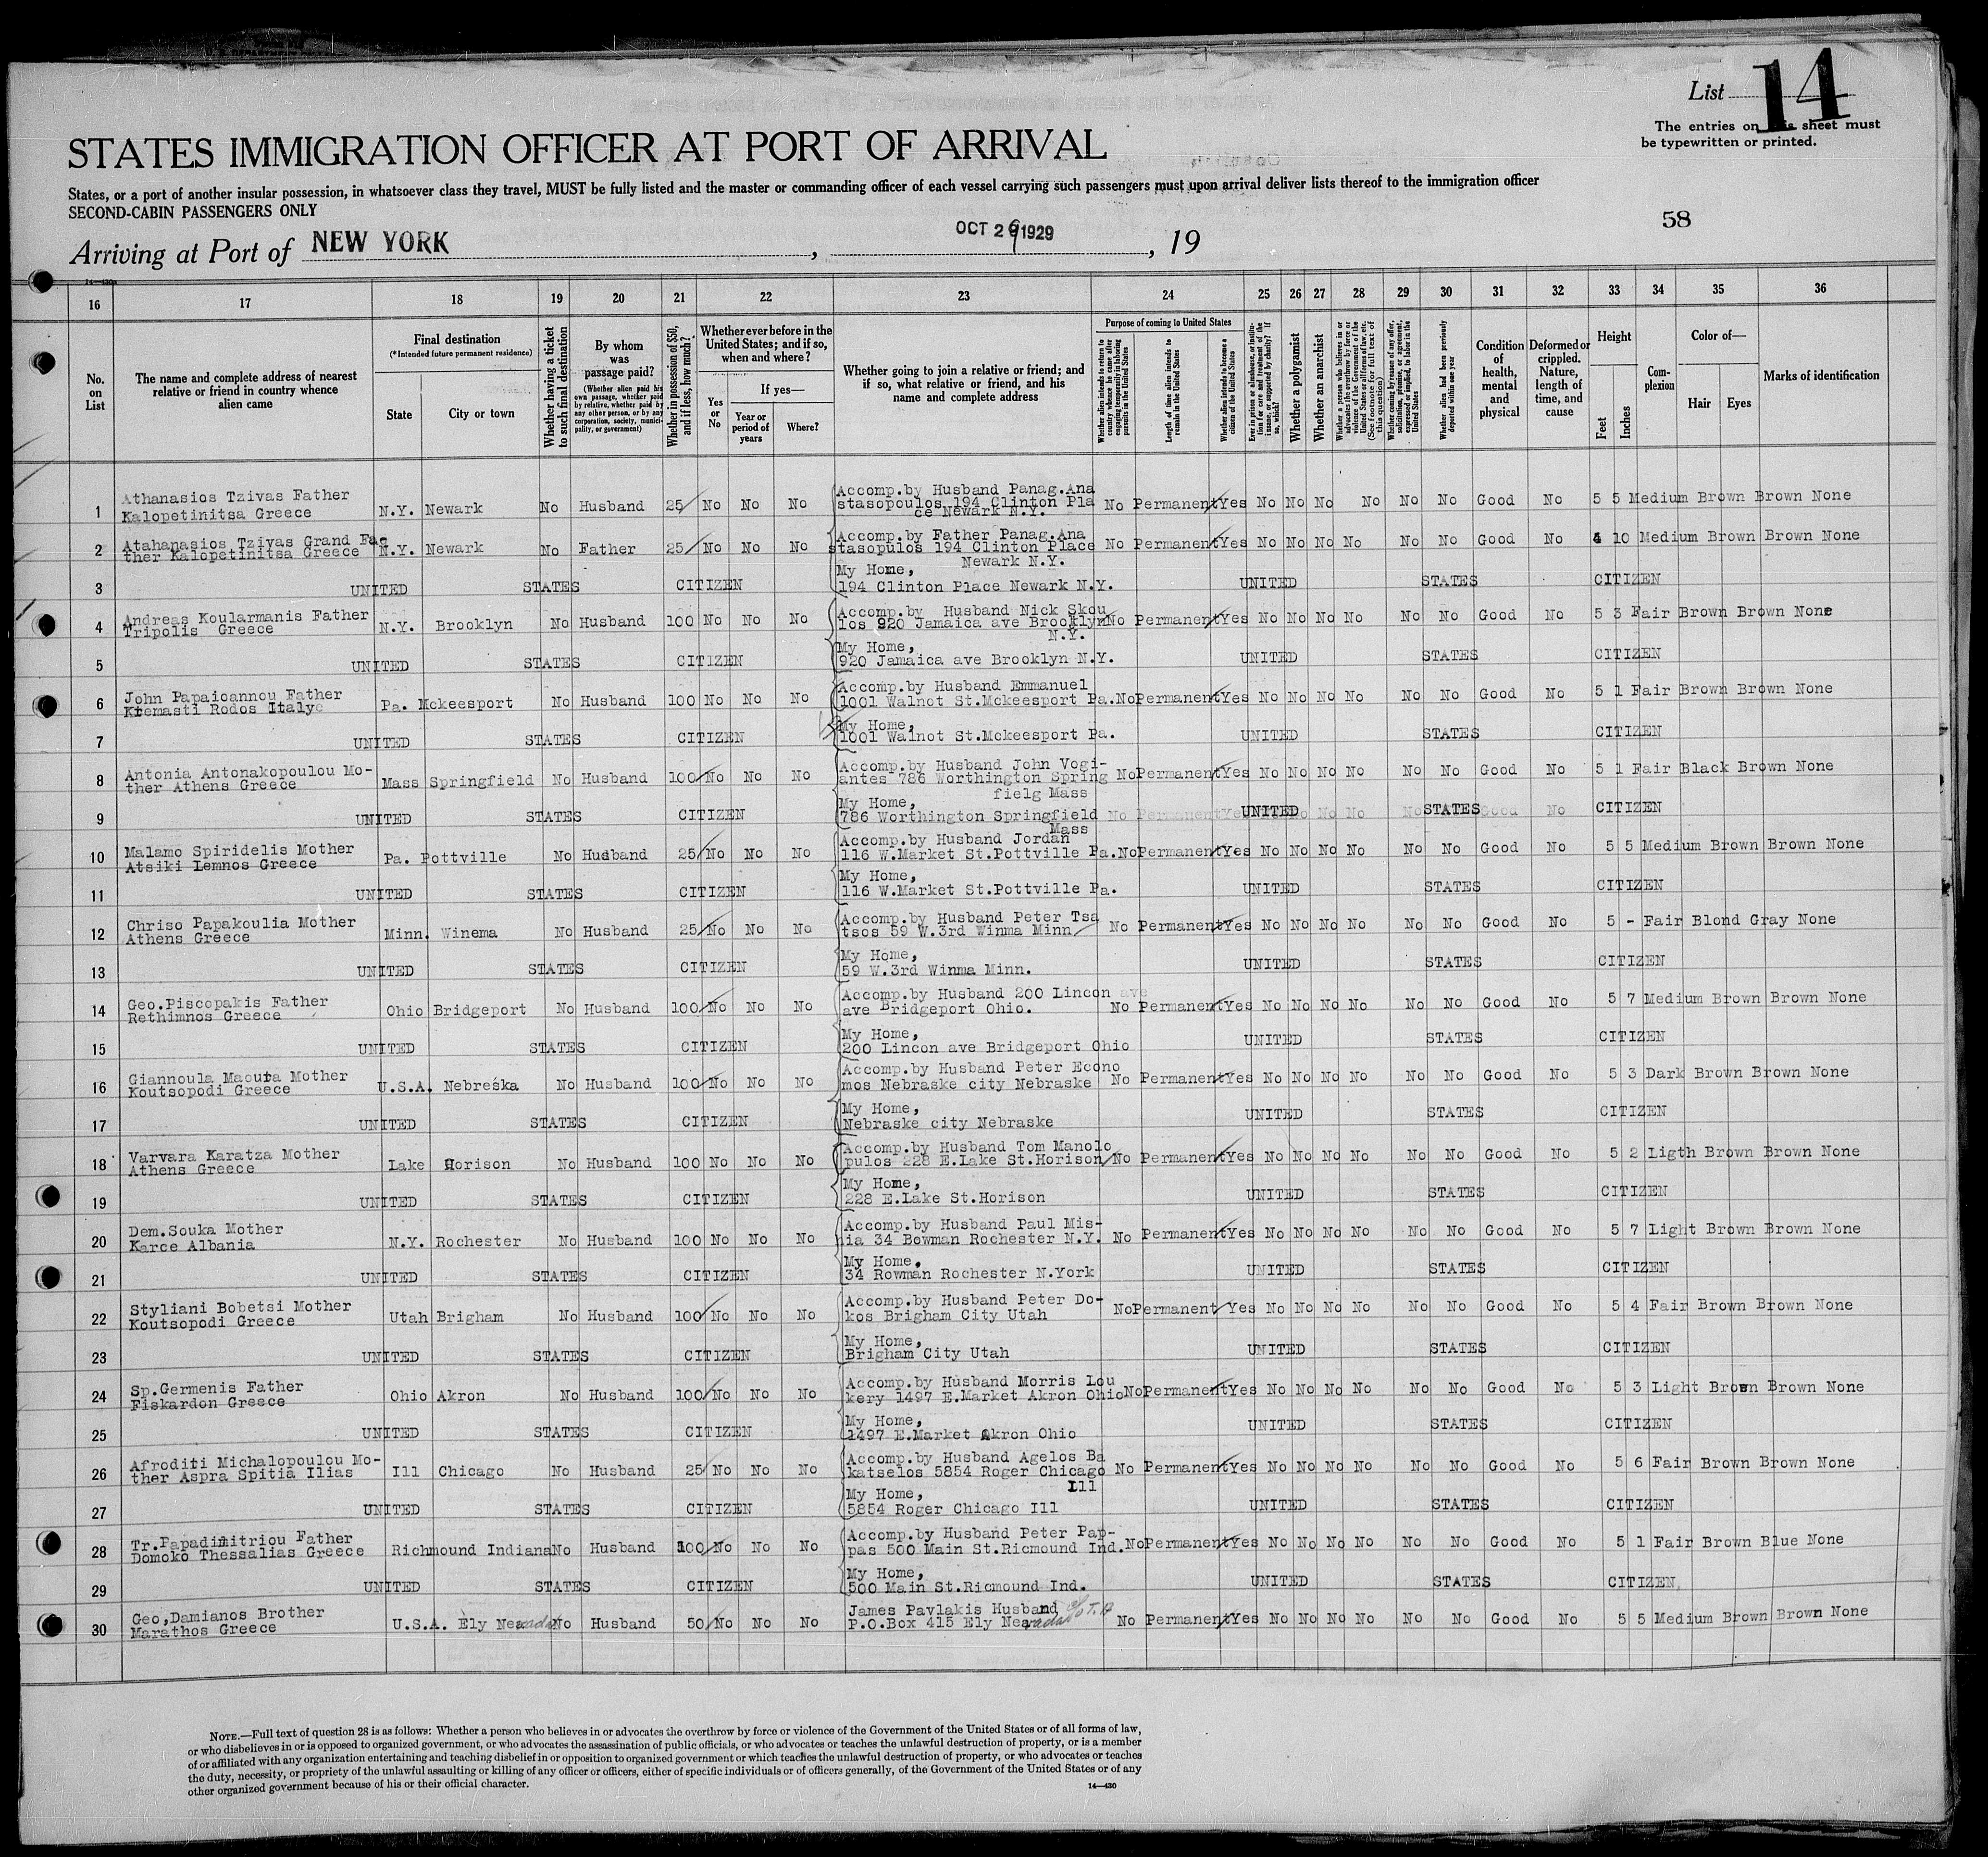 List 14
The entries on this sheet must
be typewritten or printed.
STATES IMMIGRATION OFFICER AT PORT OF ARRIVAL
States, or a port of another insular possession, in whatsoever class they travel, MUST be fully listed and the master or commanding officer of each vessel carrying such passengers must upon arrival deliver lists thereof to the immigration officer
SECOND-CABIN PASSENGERS ONLY
58
Arriving at Port of NEW YORK , OCT 29 1929 , 19
14—430
16 17 18 19 20 21 22 23 24 25 26 27 28 29 30 31 32 33 34 35 36
No. on List
The name and complete address of nearest relative or friend in country whence alien came
Final destination
(*Intended future permanent residence)
State
City or town
Whether having a ticket to such final destination
By whom was passage paid?
(Whether alien paid his own passage, whether paid by relative, whether paid by any other person, or by any corporation, society, municipality, or government)
Whether in possession of $50, and if less, how much?
Whether ever before in the United States; and if so, when and where?
Yes or No
If yes—
Year or period of years
Where?
Whether going to join a relative or friend; and if so, what relative or friend, and his name and complete address
Purpose of coming to United States
Whether alien intends to return to country whence he came after engaging temporarily in laboring pursuits in the United States
Length of time alien intends to remain in the United States
Whether alien intends to become a citizen of the United States
Ever in prison or almshouse, or institution for care and treatment of the insane, or supported by charity? If so, which?
Whether a polygamist
Whether an anarchist
Whether a person who believes in or advocates the overthrow by force or violence of the Government of the United States or all forms of law, etc. (See footnote for full text of this question)
Whether coming by reason of any offer, solicitation, promise, or agreement, expressed or implied, to labor in the United States
Whether alien had been previously deported within one year
Condition of health, mental and physical
Deformed or crippled. Nature, length of time, and cause
Height
Feet
Inches
Complexion
Color of—
Hair
Eyes
Marks of identification
1 Athanasios Tzivas Father Kalopetinitsa Greece N.Y. Newark No Husband 25 No No No Accomp.by Husband Panag.Ana stasopoulos 194 Clinton Pla ce Newark N.Y. No Permanent Yes No No No No No No Good No 5 5 Medium Brown Brown None
2 Atahanasios Tzivas Grand Fac ther Kalopetinitsa Greece N.Y. Newark No Father 25 No No No Accomp.by Father Panag.Ana stasopulos 194 Clinton Place Newark N.Y. No Permanent Yes No No No No No No Good No 4 10 Medium Brown Brown None
3 UNITED STATES CITIZEN My Home, 194 Clinton Place Newark N.Y. UNITED STATES CITIZEN
4 Andreas Koularmanis Father Tripolis Greece N.Y. Brooklyn No Husband 100 No No No Accomp.by Husband Nick Skou ios 920 Jamaica ave Brooklyn N.Y. No Permanent Yes No No No No No No Good No 5 3 Fair Brown Brown None
5 UNITED STATES CITIZEN My Home, 920 Jamaica ave Brooklyn N.Y. UNITED STATES CITIZEN
6 John Papaioannou Father Kremasti Rodos Italy Pa. Mckeesport No Husband 100 No No No Accomp.by Husband Emmanuel 1001 Walnot St.Mckeesport Pa. No Permanent Yes No No No No No No Good No 5 1 Fair Brown Brown None
7 UNITED STATES CITIZEN My Home, 1001 Walnot St.Mckeesport Pa. UNITED STATES CITIZEN
8 Antonia Antonakopoulou Mo- ther Athens Greece Mass Springfield No Husband 100 No No No Accomp.by Husband John Vogi- antes 786 Worthington Spring fielg Mass No Permanent Yes No No No No No No Good No 5 1 Fair Black Brown None
9 UNITED STATES CITIZEN My Home, 786 Worthington Springfield Mass UNITED STATES CITIZEN
10 Malamo Spiridelis Mother Atsiki Lemnos Greece Pa. Pottville No Husband 25 No No No Accomp.by Husband Jordan 116 W.Market St.Pottville Pa. No Permanent Yes No No No No No No Good No 5 5 Medium Brown Brown None
11 UNITED STATES CITIZEN My Home, 116 W.Market St.Pottville Pa. UNITED STATES CITIZEN
12 Chriso Papakoulia Mother Athens Greece Minn. Winema No Husband 25 No No No Accomp.by Husband Peter Tsa tsos 59 W.3rd Winma Minn No Permanent Yes No No No No No No Good No 5 - Fair Blond Gray None
13 UNITED STATES CITIZEN My Home, 59 W.3rd Winma Minn. UNITED STATES CITIZEN
14 Geo.Piscopakis Father Rethimnos Greece Ohio Bridgeport No Husband 100 No No No Accomp.by Husband 200 Lincon ave ave Bridgeport Ohio. No Permanent Yes No No No No No No Good No 5 7 Medium Brown Brown None
15 UNITED STATES CITIZEN My Home, 200 Lincon ave Bridgeport Ohio UNITED STATES CITIZEN
16 Giannoula Macura Mother Koutsopodi Greece U.S.A. Nebreska No Husband 100 No No No Accomp.by Husband Peter Econo mos Nebraske city Nebraske No Permanent Yes No No No No No No Good No 5 3 Dark Brown Brown None
17 UNITED STATES CITIZEN My Home, Nebraske city Nebraske UNITED STATES CITIZEN
18 Varvara Karatza Mother Athens Greece Lake Horison No Husband 100 No No No Accomp.by Husband Tom Manolo pulos 228 E.Lake St.Horison No Permanent Yes No No No No No No Good No 5 2 Ligth Brown Brown None
19 UNITED STATES CITIZEN My Home, 228 E.Lake St.Horison UNITED STATES CITIZEN
20 Dem.Souka Mother Karce Albania N.Y. Rochester No Husband 100 No No No Accomp.by Husband Paul Mis- hia 34 Bowman Rochester N.Y. No Permanent Yes No No No No No No Good No 5 7 Light Brown Brown None
21 UNITED STATES CITIZEN My Home. 34 Rowman Rochester N.York UNITED STATES CITIZEN
22 Styliani Bobetsi Mother Koutsopodi Greece Utah Brigham No Husband 100 No No No Accomp.by Husband Peter Do- kos Brigham City Utah No Permanent Yes No No No No No No Good No 5 4 Fair Brown Brown None
23 UNITED STATES CITIZEN My Home, Brigham City Utah UNITED STATES CITIZEN
24 Sp.Germenis Father Fiskardon Greece Ohio Akron No Husband 100 No No No Accomp.by Husband Morris Lou kery 1497 E.Market Akron Ohio No Permanent Yes No No No No No No Good No 5 3 Light Brown Brown None
25 UNITED STATES CITIZEN My Home, 1497 E.Market Akron Ohio UNITED STATES CITIZEN
26 Afroditi Michalopoulou Mo- ther Aspra Spitia Ilias Ill Chicago No Husband 25 No No No Accomp.by Husband Agelos Ba katselos 5854 Roger Chicago Ill No Permanent Yes No No No No No No Good No 5 6 Fair Brown Brown None
27 UNITED STATES CITIZEN My Home, 5854 Roger Chicago Ill UNITED STATES CITIZEN
28 Tr.Papadimitriou Father Domoko Thessalias Greece Richmound Indiana No Husband 100 No No No Accomp.by Husband Peter Pap- pas 500 Main St.Ricmound Ind. No Permanent Yes No No No No No No Good No 5 1 Fair Brown Blue None
29 UNITED STATES CITIZEN My Home, 500 Main St.Ricmound Ind. UNITED STATES CITIZEN
30 Geo,Damianos Brother Marathos Greece U.S.A. Ely Nevada No Husband 50 No No No James Pavlakis Husband P.O.Box 415 Ely Nevada No Permanent Yes No No No No No No Good No 5 5 Medium Brown Brown None
NOTE.—Full text of question 28 is as follows: Whether a person who believes in or advocates the overthrow by force or violence of the Government of the United States or of all forms of law,
or who disbelieves in or is opposed to organized government, or who advocates the assassination of public officials, or who advocates or teaches the unlawful destruction of property, or is a member
of or affiliated with any organization entertaining and teaching disbelief in or opposition to organized government or which teaches the unlawful destruction of property, or who advocates or teaches
the duty, necessity, or propriety of the unlawful assaulting or killing of any officer or officers, either of specific individuals or of officers generally, of the Government of the United States or of any
other organized government because of his or their official character.
14—430